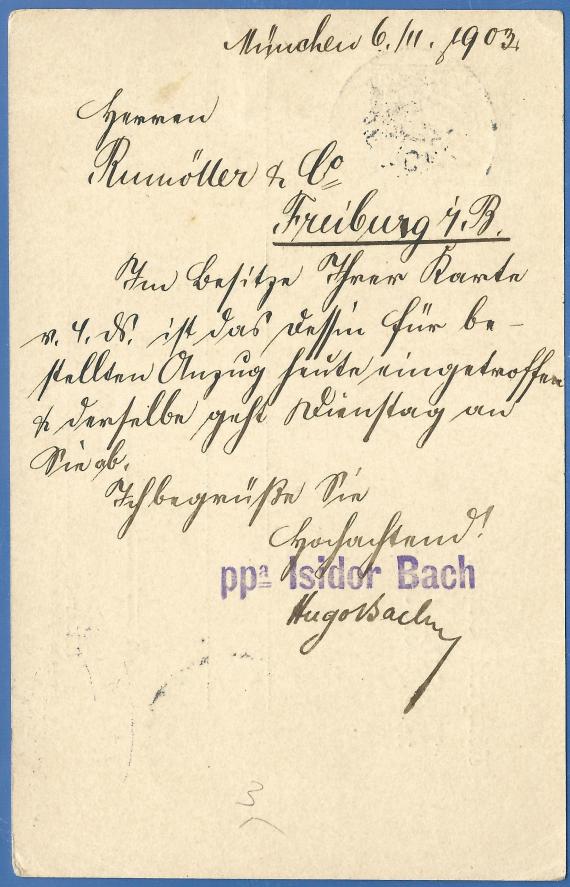 München 6./11. 1903
Herren
Rumöller & Co
Freiburg i/B.
Im Besitze Ihrer Karte
v. 4. ds. ist das Dessin für be-
stellten Anzug heute eingetroffen
& derselbe geht Dienstag an
Sie ab.
Ich begrüße Sie
Hochachtend!
ppa Isidor Bach
Hugo Bach
3